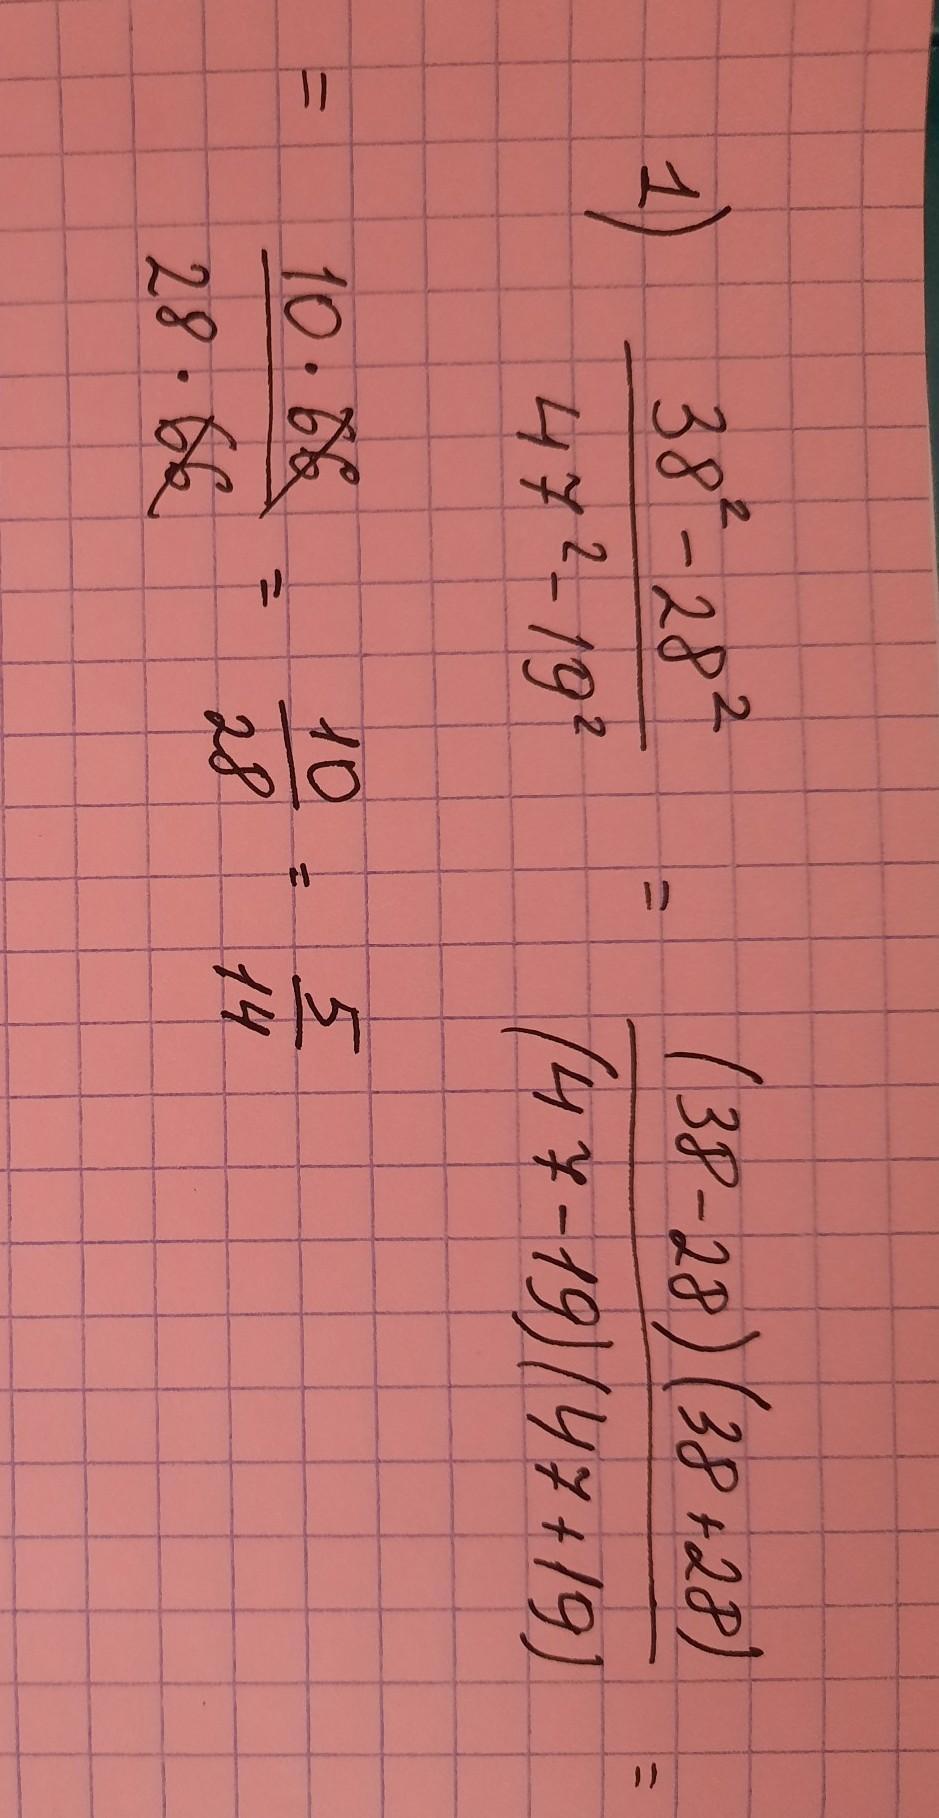 1) \frac{38² - 28²}{47² - 19²} = \frac{(38 - 28)(38 + 28)}{(47 - 19)(47 + 19)} =
= \frac{10 · 66}{28 · 66} = \frac{10}{28} = \frac{5}{14}